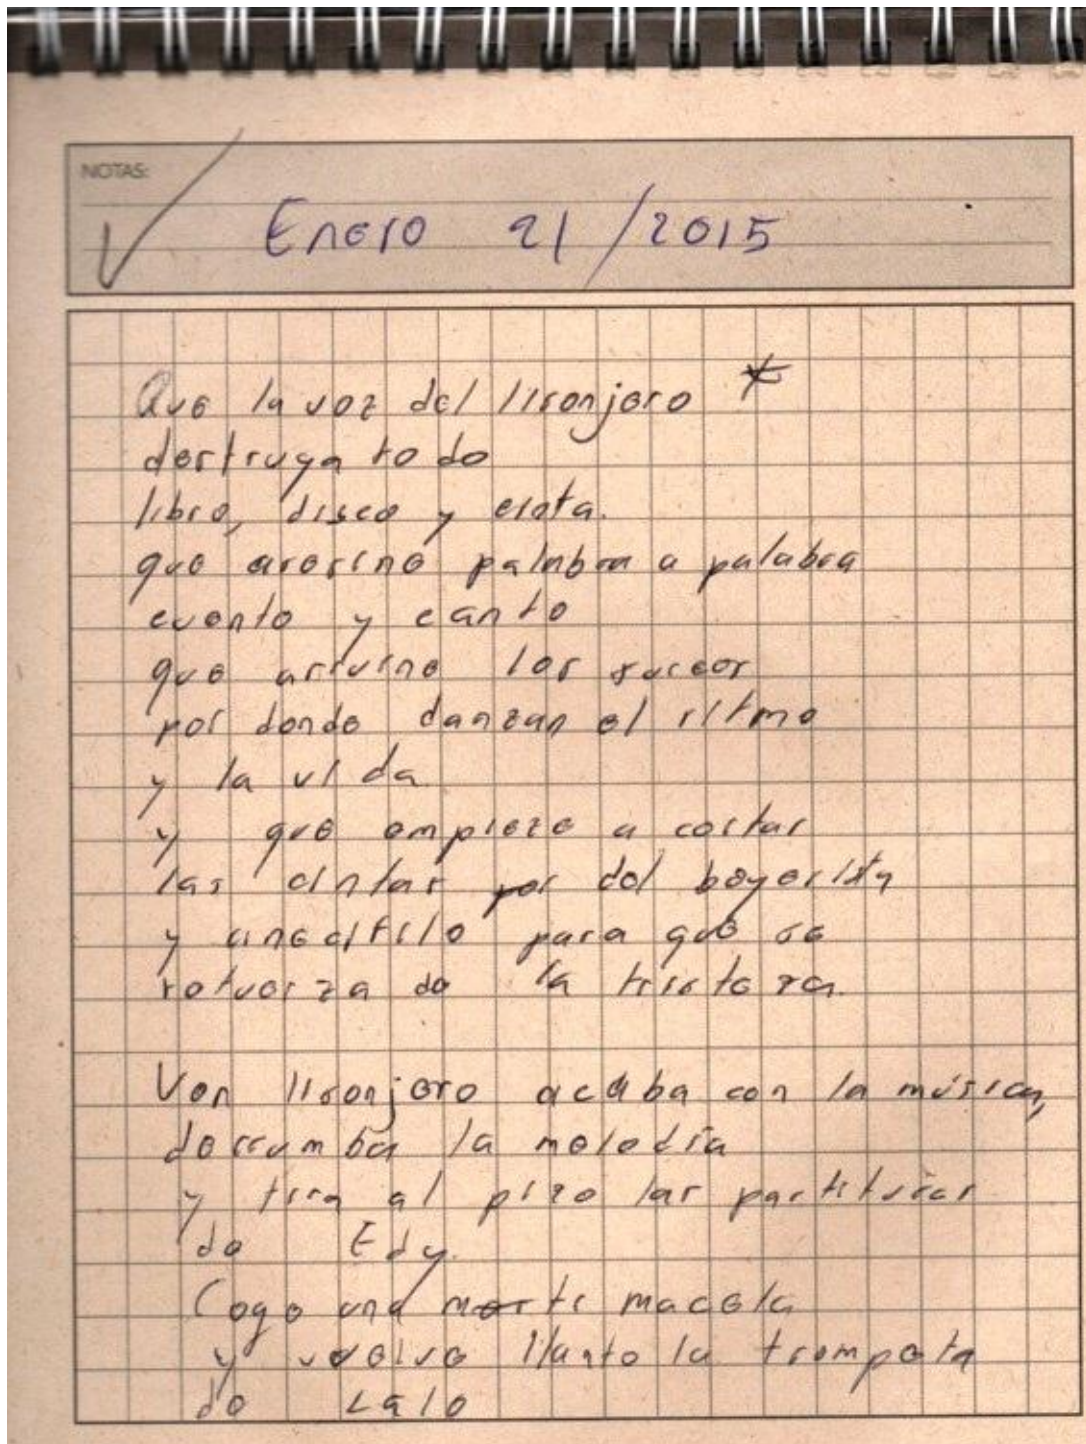 NOTAS:
Enero 21/2015
Que la voz del lisonjero *
destruya todo
libro, disco y cinta.
que asesine palabra a palabra
cuento y canto
que arruine los surcos
por donde danzan el ritmo
y la vida
y que empieze a cortar
las cintas por del boyerista
y cinecitilo para que se
retuerza de la tristeza.
Ven lisonjero acaba con la música,
derrumba la melodía
y tira al pizo las partituras
de Edy.
Coge una mar te macela
y vuelve llanto la trompeta
de Lalo